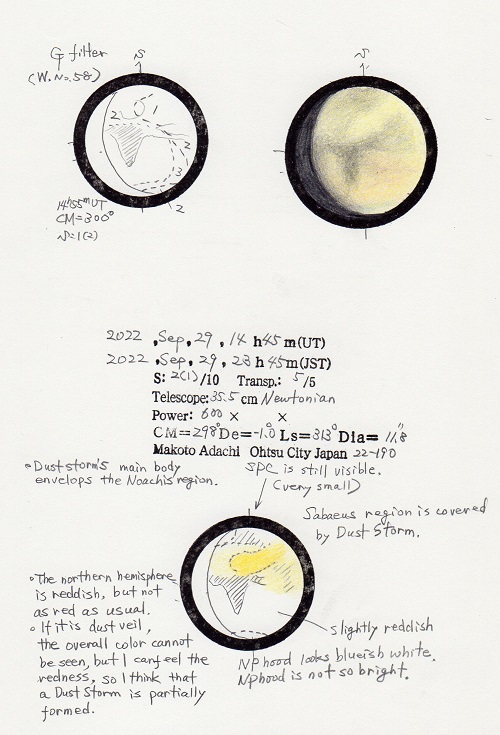 G filter
(W. No. 58)
S
S
2
1
2
3
2
14h55m UT
CM=300°
S=1(2)
2022 , Sep, 29 , 14 h 45 m (UT)
2022 , Sep, 29 , 23 h 45 m (JST)
S: 2(1)/10 Transp.: 5/5
Telescope: 35.5 cm Newtonian
Power: 600 × ×
CM=298° De=-1.0° Ls=313° Dia= 11.″8
Makoto Adachi Ohtsu City Japan 22-190
• Dust storm's main body
envelops the Noachis region.
SPC is still visible.
(very small)
Sabaeus region is covered
by Dust Storm.
• The northern hemisphere
is reddish, but not
as red as usual.
• If it is dust veil,
the overall color cannot
be seen, but I can feel the
redness, so I think that
a Dust Storm is partially
formed.
slightly reddish
NPhood looks blueish white.
NPhood is not so bright.